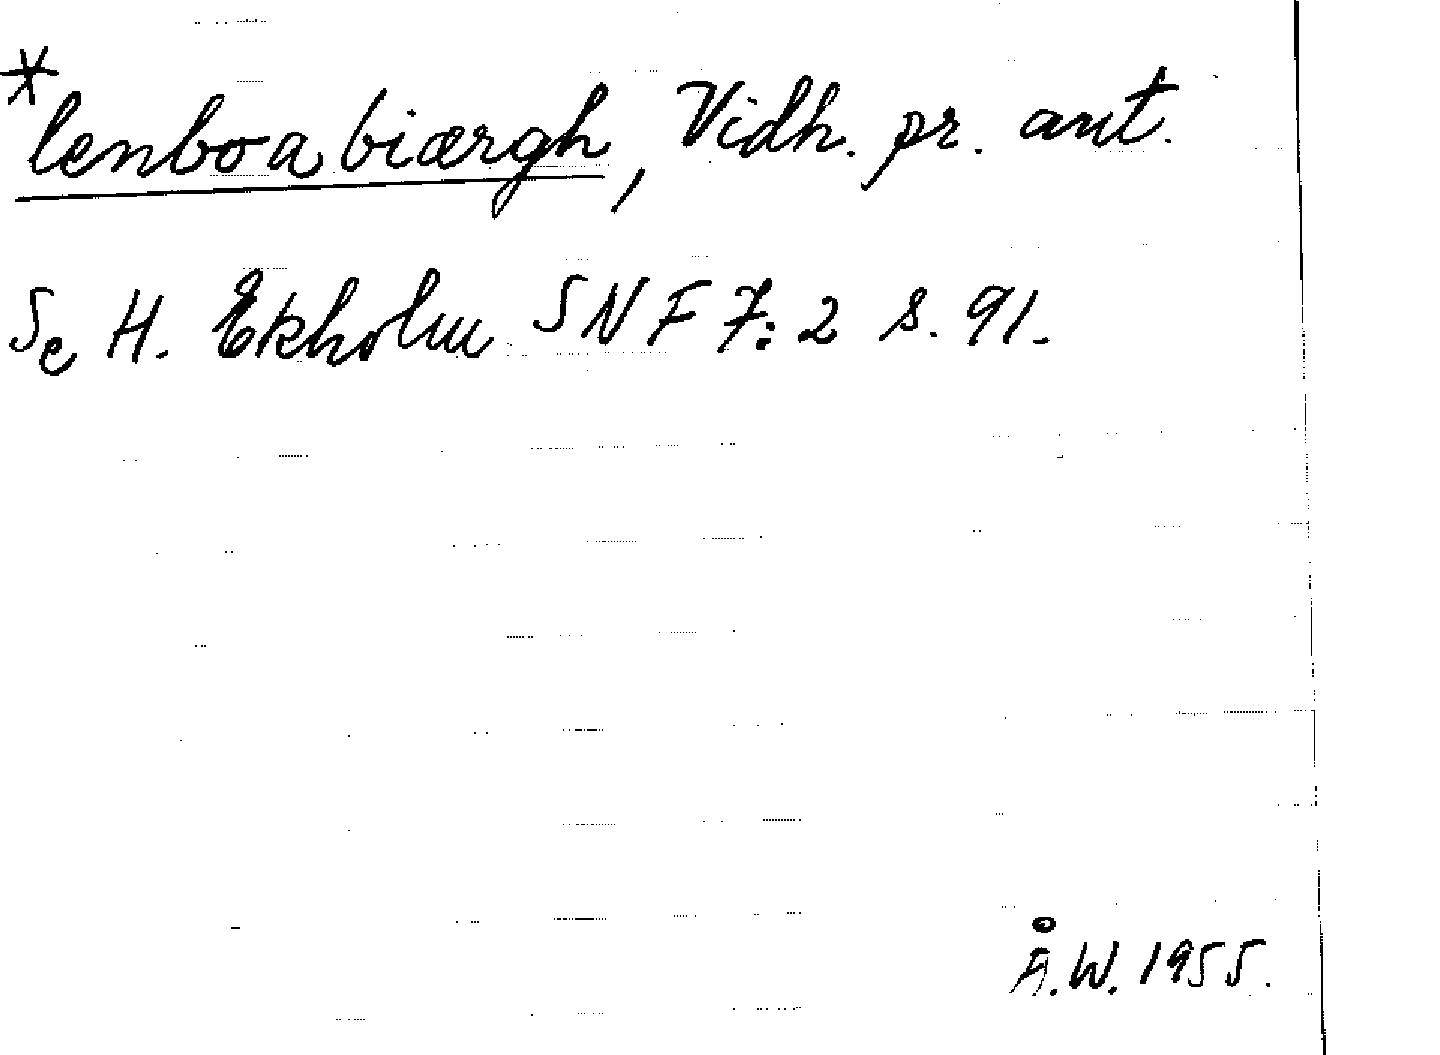 *lenboabiærgh, Vidh. pr. ant.
Se H. Ekholm SNF 7:2 s. 91.
Å.W. 1955.